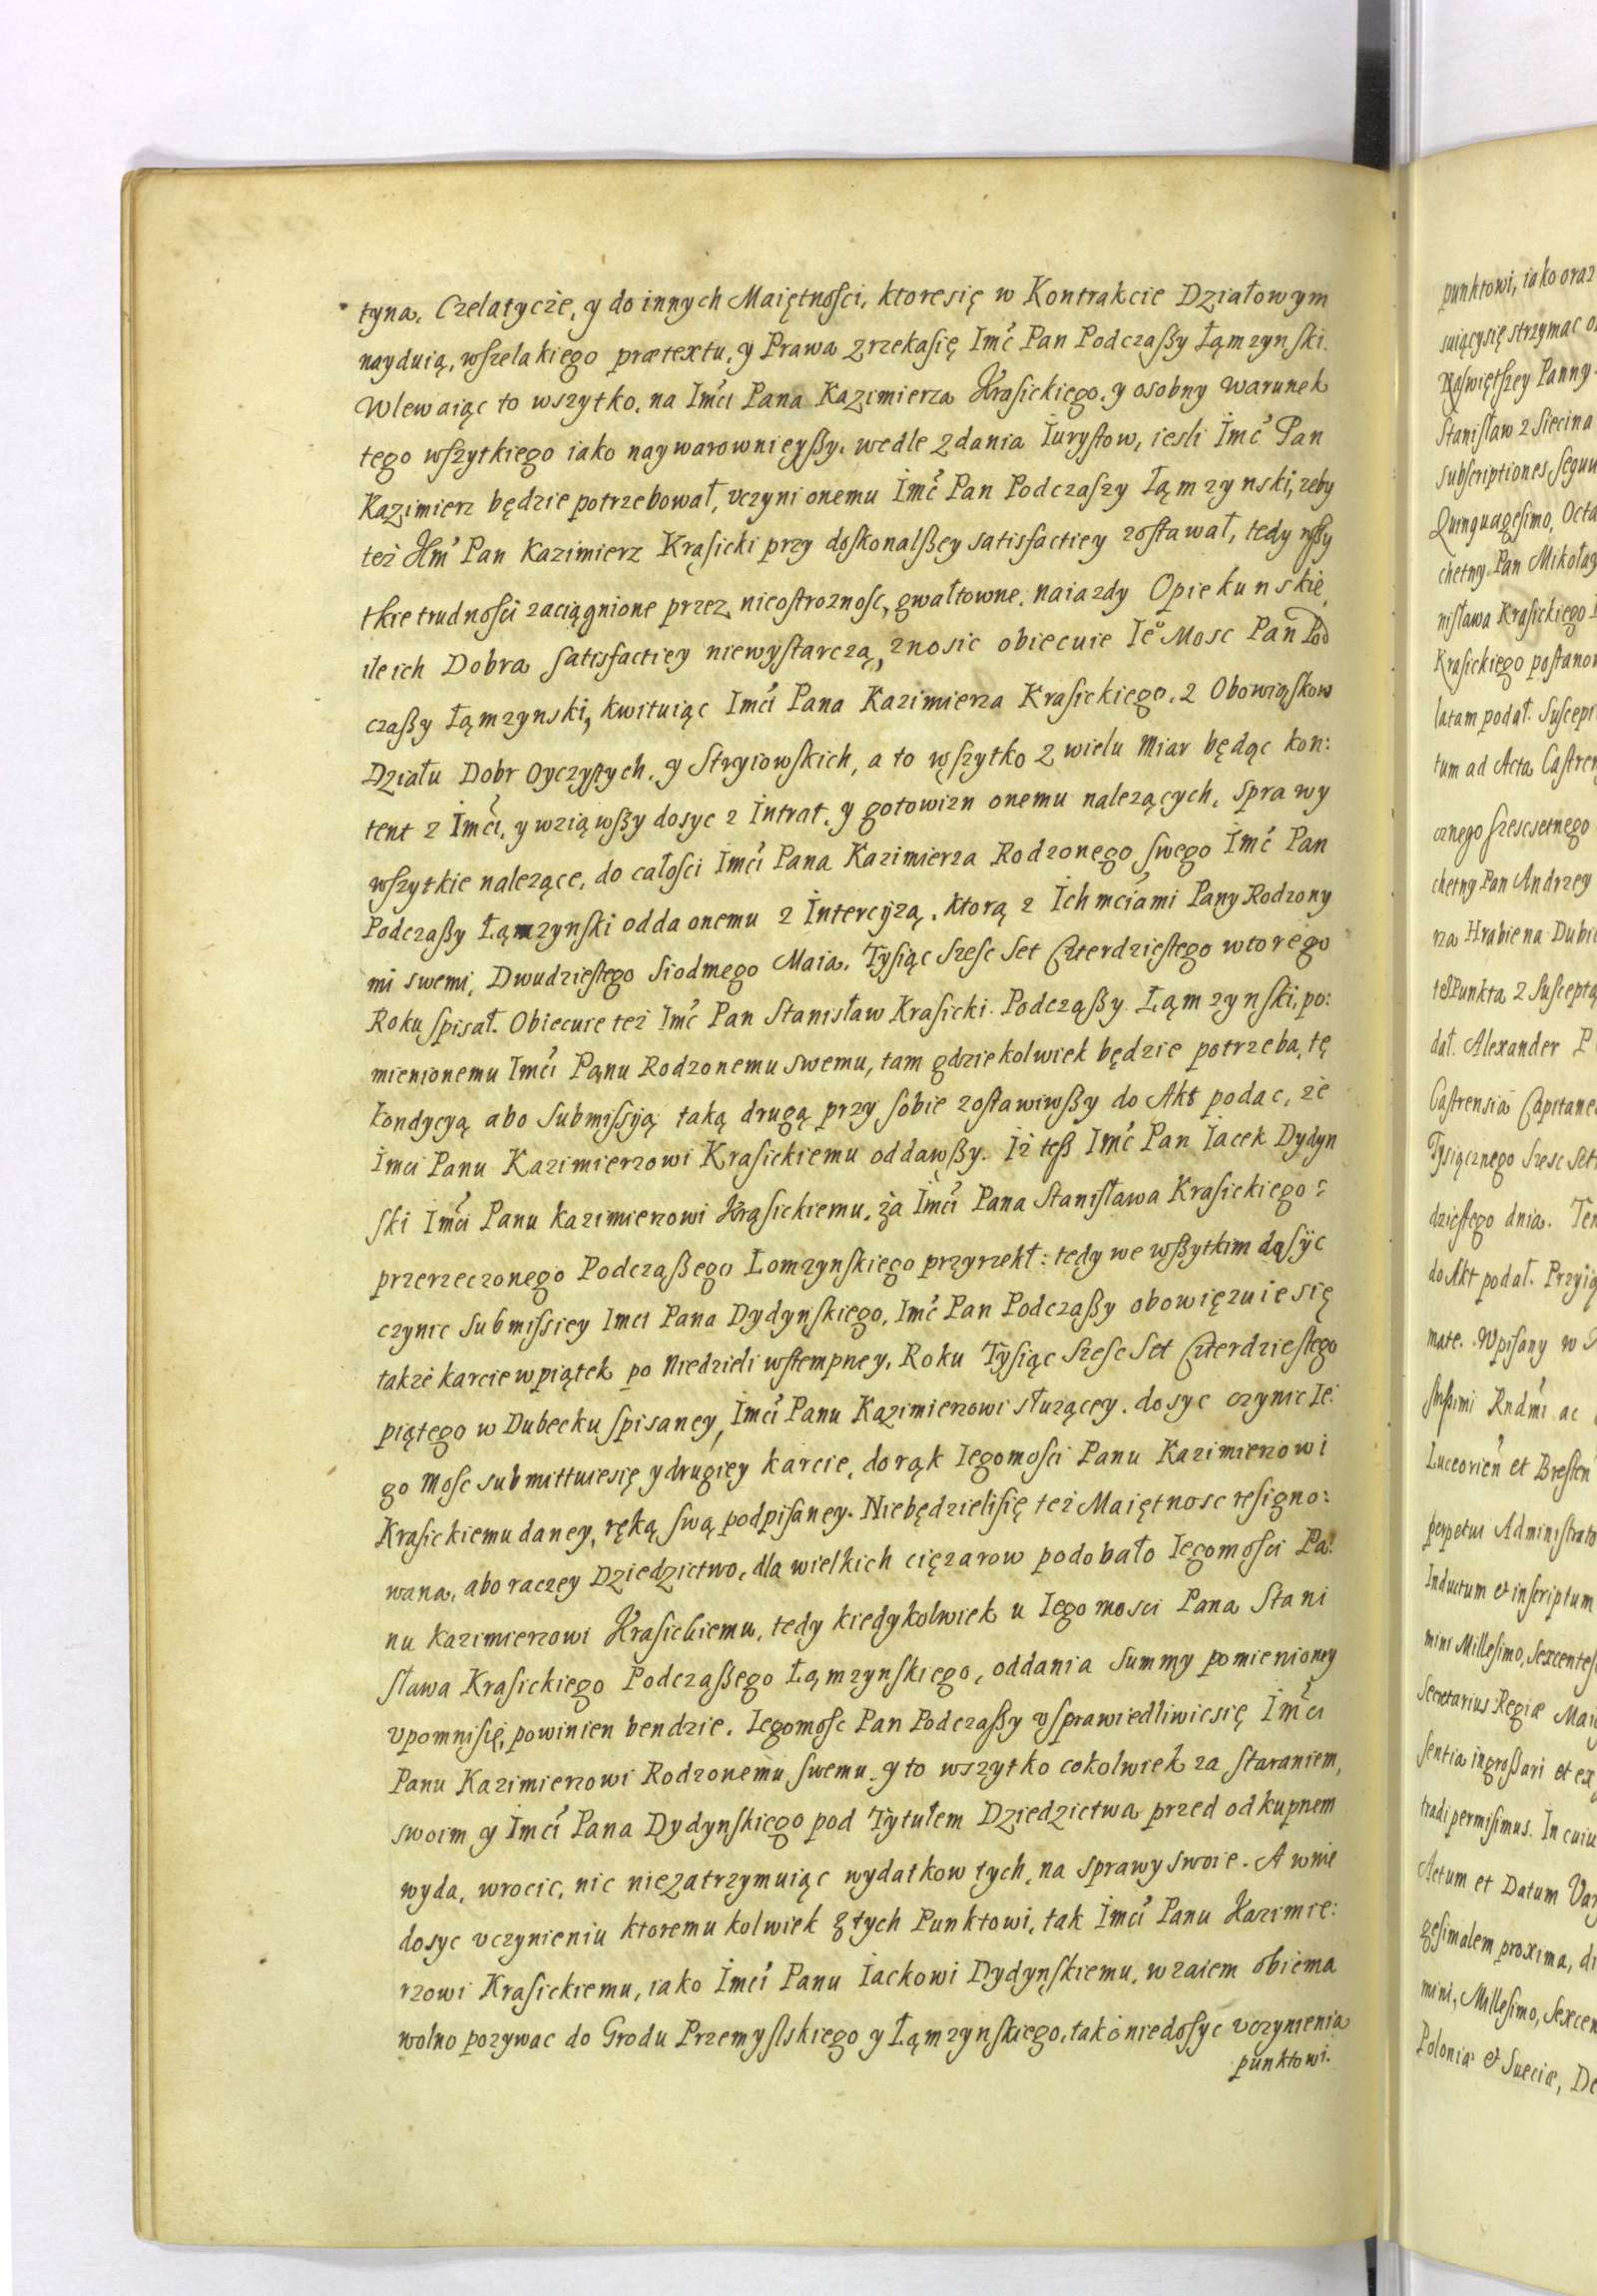 tyna, Czelatycze, y do innych Maiętnosci, ktore się w Kontrakcie Działowym
nayduią, wszelakiego prætextu, y Prawa zrzeka się Imć Pan Podczaszy Łąmzynski.
Wlewaiąc to wszytko, na Imći Pana Kazimierza Krasickiego, y osobny warunek
tego wszytkiego iako naywarownieyszy, wedle zdania Iurystow, iesli Imć Pan
Kazimierz będzie potrzebował, vczyni onemu Imć Pan Podczaszy Łąmzynski, zeby
też Im Pan Kazimierz Krasicki przy doskonalszey satisfactiey zostawał, tedy wszy
tkie trudnosci zaciągnione przez nieostroznosc, gwałtowne naiazdy Opiekunskie,
ile ich Dobra satisfactiey niewystarczą, znosic obiecuie Ieº Mosc Pan Pod
czaszy Łąmzynski, kwituiąc Imći Pana Kazimierza Krasickiego, z Obowiąskow
Działu Dobr Oyczystych, y Stryiowskich, a to wszytko z wielu miar będąc kon:
tent z Imći, y wziąwszy dosyc z Intrat, y gotowizn onemu nalezących, sprawy
wszytkie nalezące, do całosci Imći Pana Kazimierza Rodzonego swego Imć Pan
Podczaszy Łąmzynski odda onemu z Intercyzą, ktorą z Ichmciami Pany Rodzony
mi swemi, Dwudziestego Siodmego Maia, Tysiąc Szesc Set Czterdziestego wtorego
Roku spisał. Obiecuie też Imć Pan Stanisław Krasicki Podczaszy Łąmzynski, po:
mienionemu Imći Panu Rodzonemu swemu, tam gdziekolwiek będzie potrzeba, tę
kondycyą abo submissyą taką drugą przy sobie zostawiwszy do Akt podac, że
Imci Panu Kazimierzowi Krasickiemu oddawszy. Iż tesz Imć Pan Iacek Dydyn
ski Imći Panu Kazimierzowi Krasickiemu, za Imći Pana Stanisława Krasickiego:
przerzeczonego Podczaszego Łomzynskiego przyrzekł: tedy we wszytkim dosyc
czynic submissiey Imci Pana Dydynskiego, Imć Pan Podczaszy obowięzuie się
także karcie w piątek po Niedzieli wstempney, Roku Tysiąc Szesc Set Czterdziestego
piątego w Dubecku spisaney, Imći Panu Kazimierzowi słuzącey, dosyc czynic Ie:
go Mosc submittuie się y drugiey karcie, do rąk Iegomosci Panu Kazimierzowi
Krasickiemu daney, ręką swą podpisaney. Niebędzieli się też Maiętnosc resigno:
wana, abo raczey Dziedzictwo, dla wielkich cięzarow podobało Iegomosci Pa:
nu Kazimierzowi Krasickiemu, tedy kiedykolwiek u Iegomosci Pana Stani
sława Krasickiego Podczaszego Łąmzynskiego, oddania Summy pomienioney
vpomni się, powinien bendzie, Iegomosc Pan Podczaszy vsprawiedliwic się Imći
Panu Kazimierzowi Rodzonemu swemu, y to wszytko cokolwiek za staraniem,
swoim y Imći Pana Dydynskiego pod Tytułem Dziedzictwa przed odkupnem
wyda, wrocic, nic niezatrzymuiąc wydatkow tych, na sprawy swoie. A w nie
dosyc vczynieniu ktoremu kolwiek z tych Punktowi, tak Imći Panu Kazimie:
rzowi Krasickiemu, iako Imći Panu Iackowi Dydynskiemu, wzaiem obiema
wolno pozywac do Grodu Przemyslskiego y Łąmzynskiego, tak o niedosyc vczynienia
punktowi.
punktowi, iako oraz
Naswiętszey Panny
Stanisław z Siecina
Subscriptiones
Quinquagesimo, Octa
chetny Pan Mikołay
nisława Krasickiego
Krasickiego postanow
latam podał. Suscepi
tum ad Acta Castren
cznego szescsetnego
chetny Pan Andrzey
rza Hrabiena Dubie
te Punkta z Suscepta
dał. Alexander P
Castrensia Capitane
Tysiącznego Szesc Set
dziestego dnia. Ten
do Akt podał. Przyią
mate. Wpisany w
Luceorien et Bresten
perpetui Administrato
Inductum et inscriptum
mini Millesimo, Sexcentes
Secretarius Regiæ Maie
sentia ingrossari et ex
tradi permisimus. In cuiu
Actum et Datum Var
gesimalem proxima, di
mini, Millesimo, Sexcen
Poloniæ et Sueciæ, De